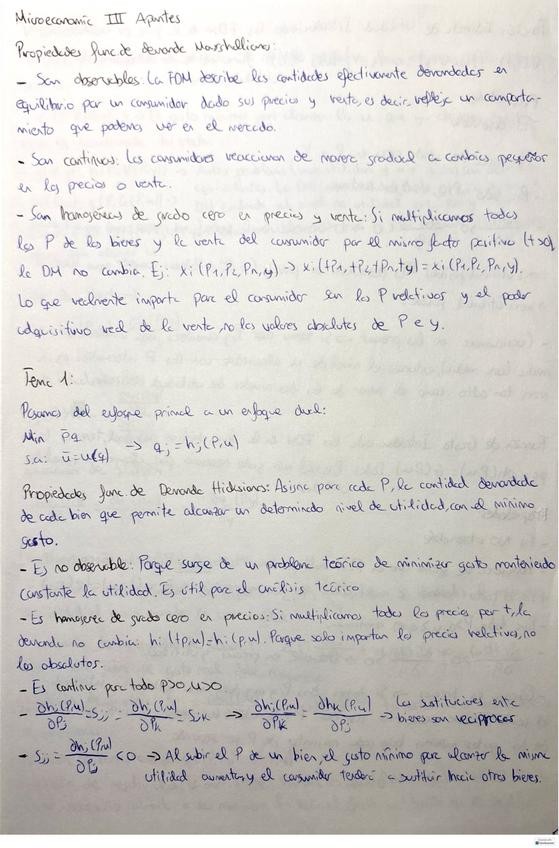 Microeconomic III Apuntes
Propiedades func de demande Marshalliana:
- Son observables: La FDM describe las cantidades efectivamente demandadas en
equilibrio por un consumidor dado sus precios y renta, es decir, refleja un comporta-
miento que podemos ver en el mercado.
- Son continuas: Los consumidores reaccionan de manera gradual a cambios pequeños
en los precios o renta.
- San homogéneas de grado cero en precios y renta: Si multiplicamos todos
los P de los bienes y la renta del consumidor por el mismo factor positivo (t>0)
la DM no cambia. Ej: xi(P1,P2,Pn,y) → xi(tP1,tP2,tPn,ty) = xi(P1,P2,Pn,y).
Lo que realmente importa para el consumidor son los P relativos y el poder
adquisitivo real de la renta, no los valores absolutos de P e y.
Tema 1:
Pasamos del enfoque primal a un enfoque dual:
Min p̄q
s.a: ū=u(q) → qj = hj(P,u)
Propiedades func. de Demanda Hicksiana: Asigna para cada P, la cantidad demandada
de cada bien que permite alcanzar un determinado nivel de utilidad, con el mínimo
gasto.
- Es no observable: Porque surge de un problema teórico de minimizar gasto manteniendo
constante la utilidad. Es útil para el análisis teórico
- Es homogenea de grado cero en precios: Si multiplicamos todos los precios por t, la
demanda no cambia: hi(tp,u)=hi(p,u). Porque solo importan los precios relativos, no
los absolutos.
- Es continua para todo P>0, u>0
- ∂hj(P,u)/∂Pj = Sjj - ∂hj(P,u)/∂Pk = Sjk → ∂hj(P,u)/∂Pk = ∂hk(P,u)/∂Pj → Las sustituciones entre bienes son reciprocas
- Sjj = ∂hj(P,u)/∂Pj <0 → Al subir el P de un bien, el gasto mínimo para alcanzar la misma
utilidad aumenta, y el consumidor tenderá a sustituir hacia otros bienes.